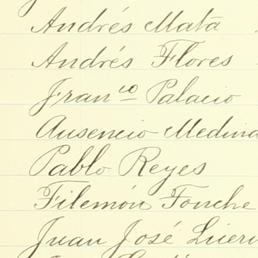 Andrés Mata
Andrés Flores
Franco Palacio
Ausencio Medina
Pablo Reyes
Filemón Fonche
Juan José